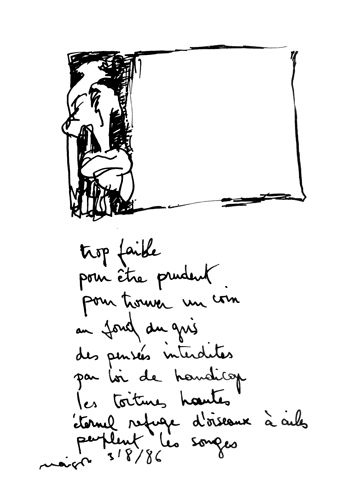 trop faible
pour être prudent
pour trouver un coin
au fond du gris
des pensées interdites
par loi de handicap
les toitures hautes
éternel refuge d'oiseaux à ailes
peuplent les songes
maison 3/8/86